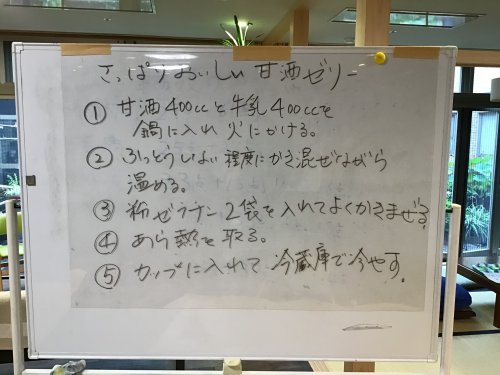 さっぱりおいしい甘酒ゼリー
① 甘酒400ccと牛乳400ccを
鍋に入れ火にかける。
② ふっとうしない程度にかき混ぜながら
温める。
③ 粉ゼラチン2袋を入れてよくかきまぜる
④ あら熱を取る。
⑤ カップに入れて冷蔵庫で冷やす。